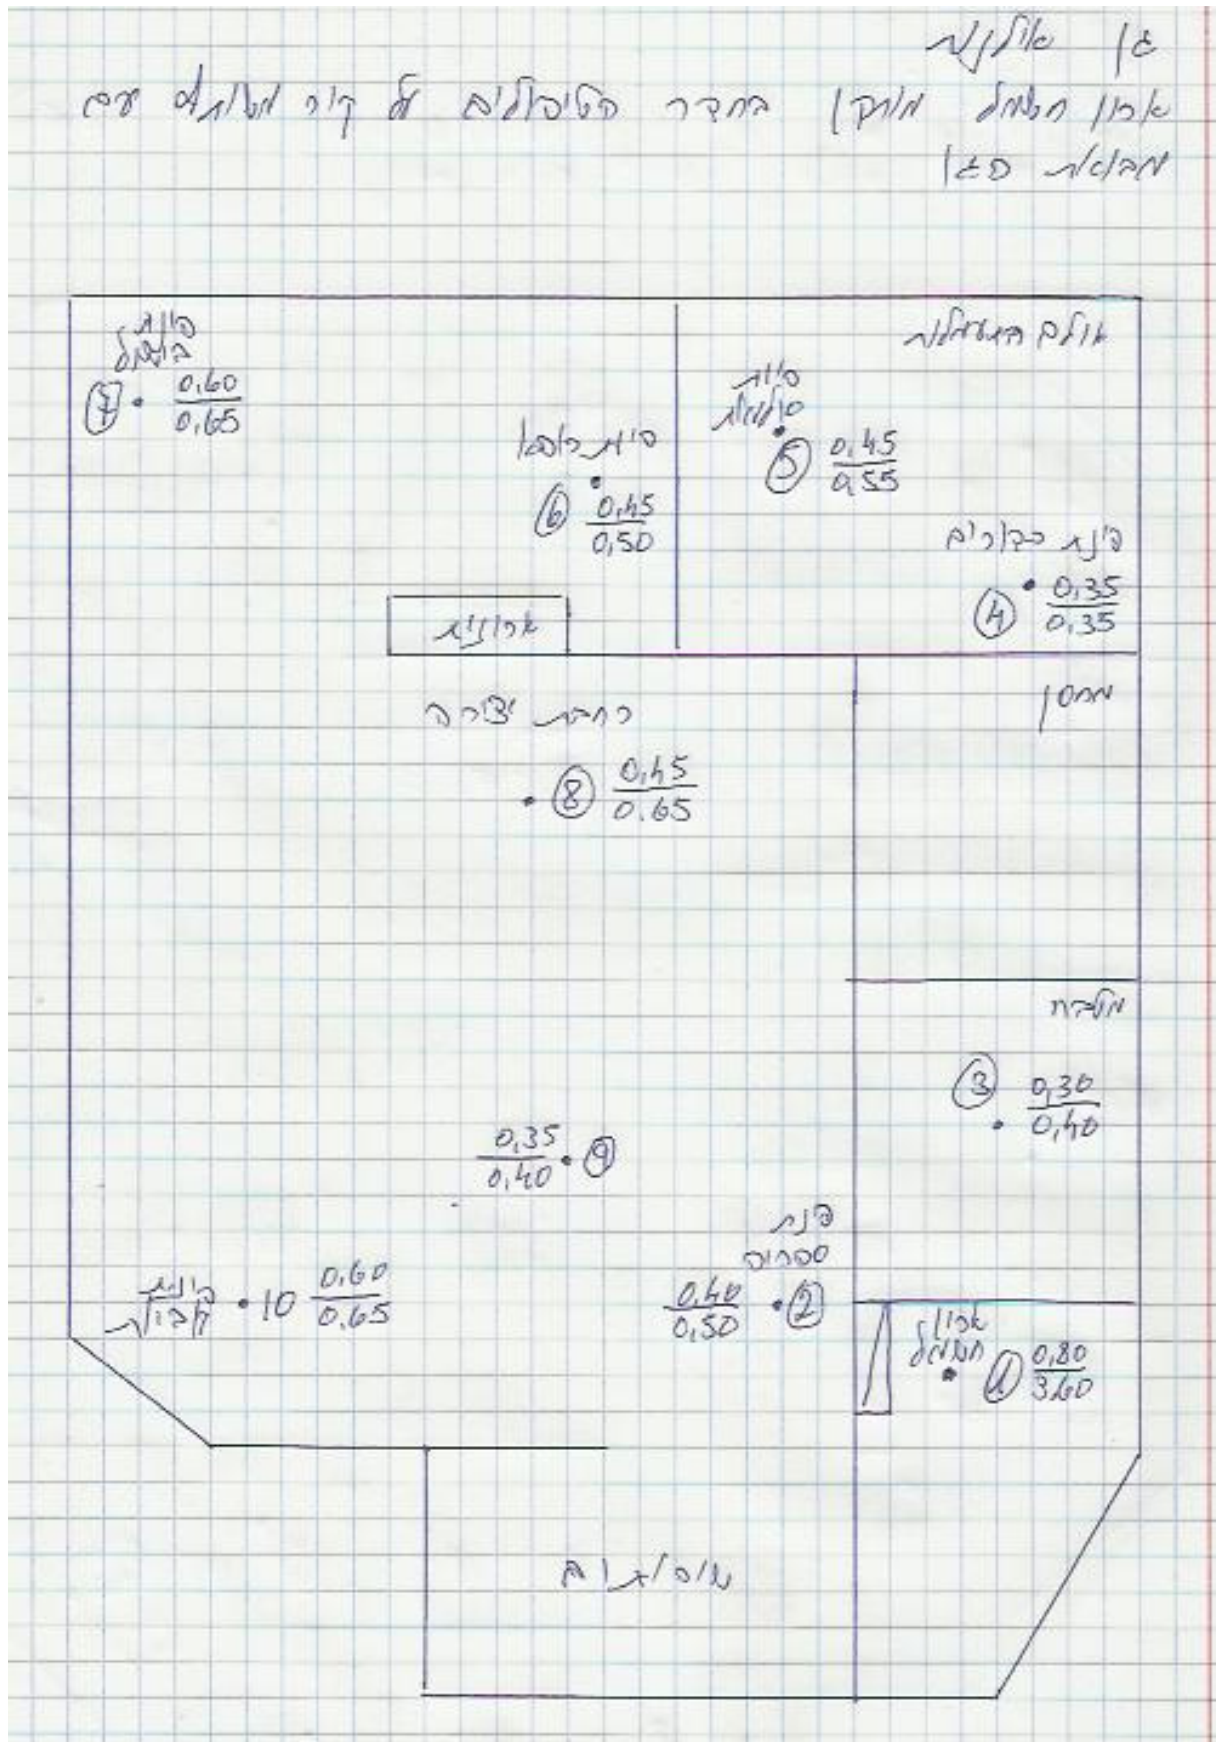 גן אילנות
ארון חשמל מותקן בחדר הטיפולים על קיר משותף עם
מבואת הגן
פינת
בישול
7 0,60
0,65
אולם התעמלות
פינת
5 0,45
0,55
פינת רופא
6 0,45
0,50
פינת כדורים
4 0,35
0,35
ארונית
מחסן
רחבת יצירה
8 0,45
0.65
מטבח
3 0,30
0,40
0,35
0,40 9
פנת
ספרים
0,40
0,50 2
פינת
10 0,60
0,65
ארון
חשמל
1 0,80
3,60
שירותים